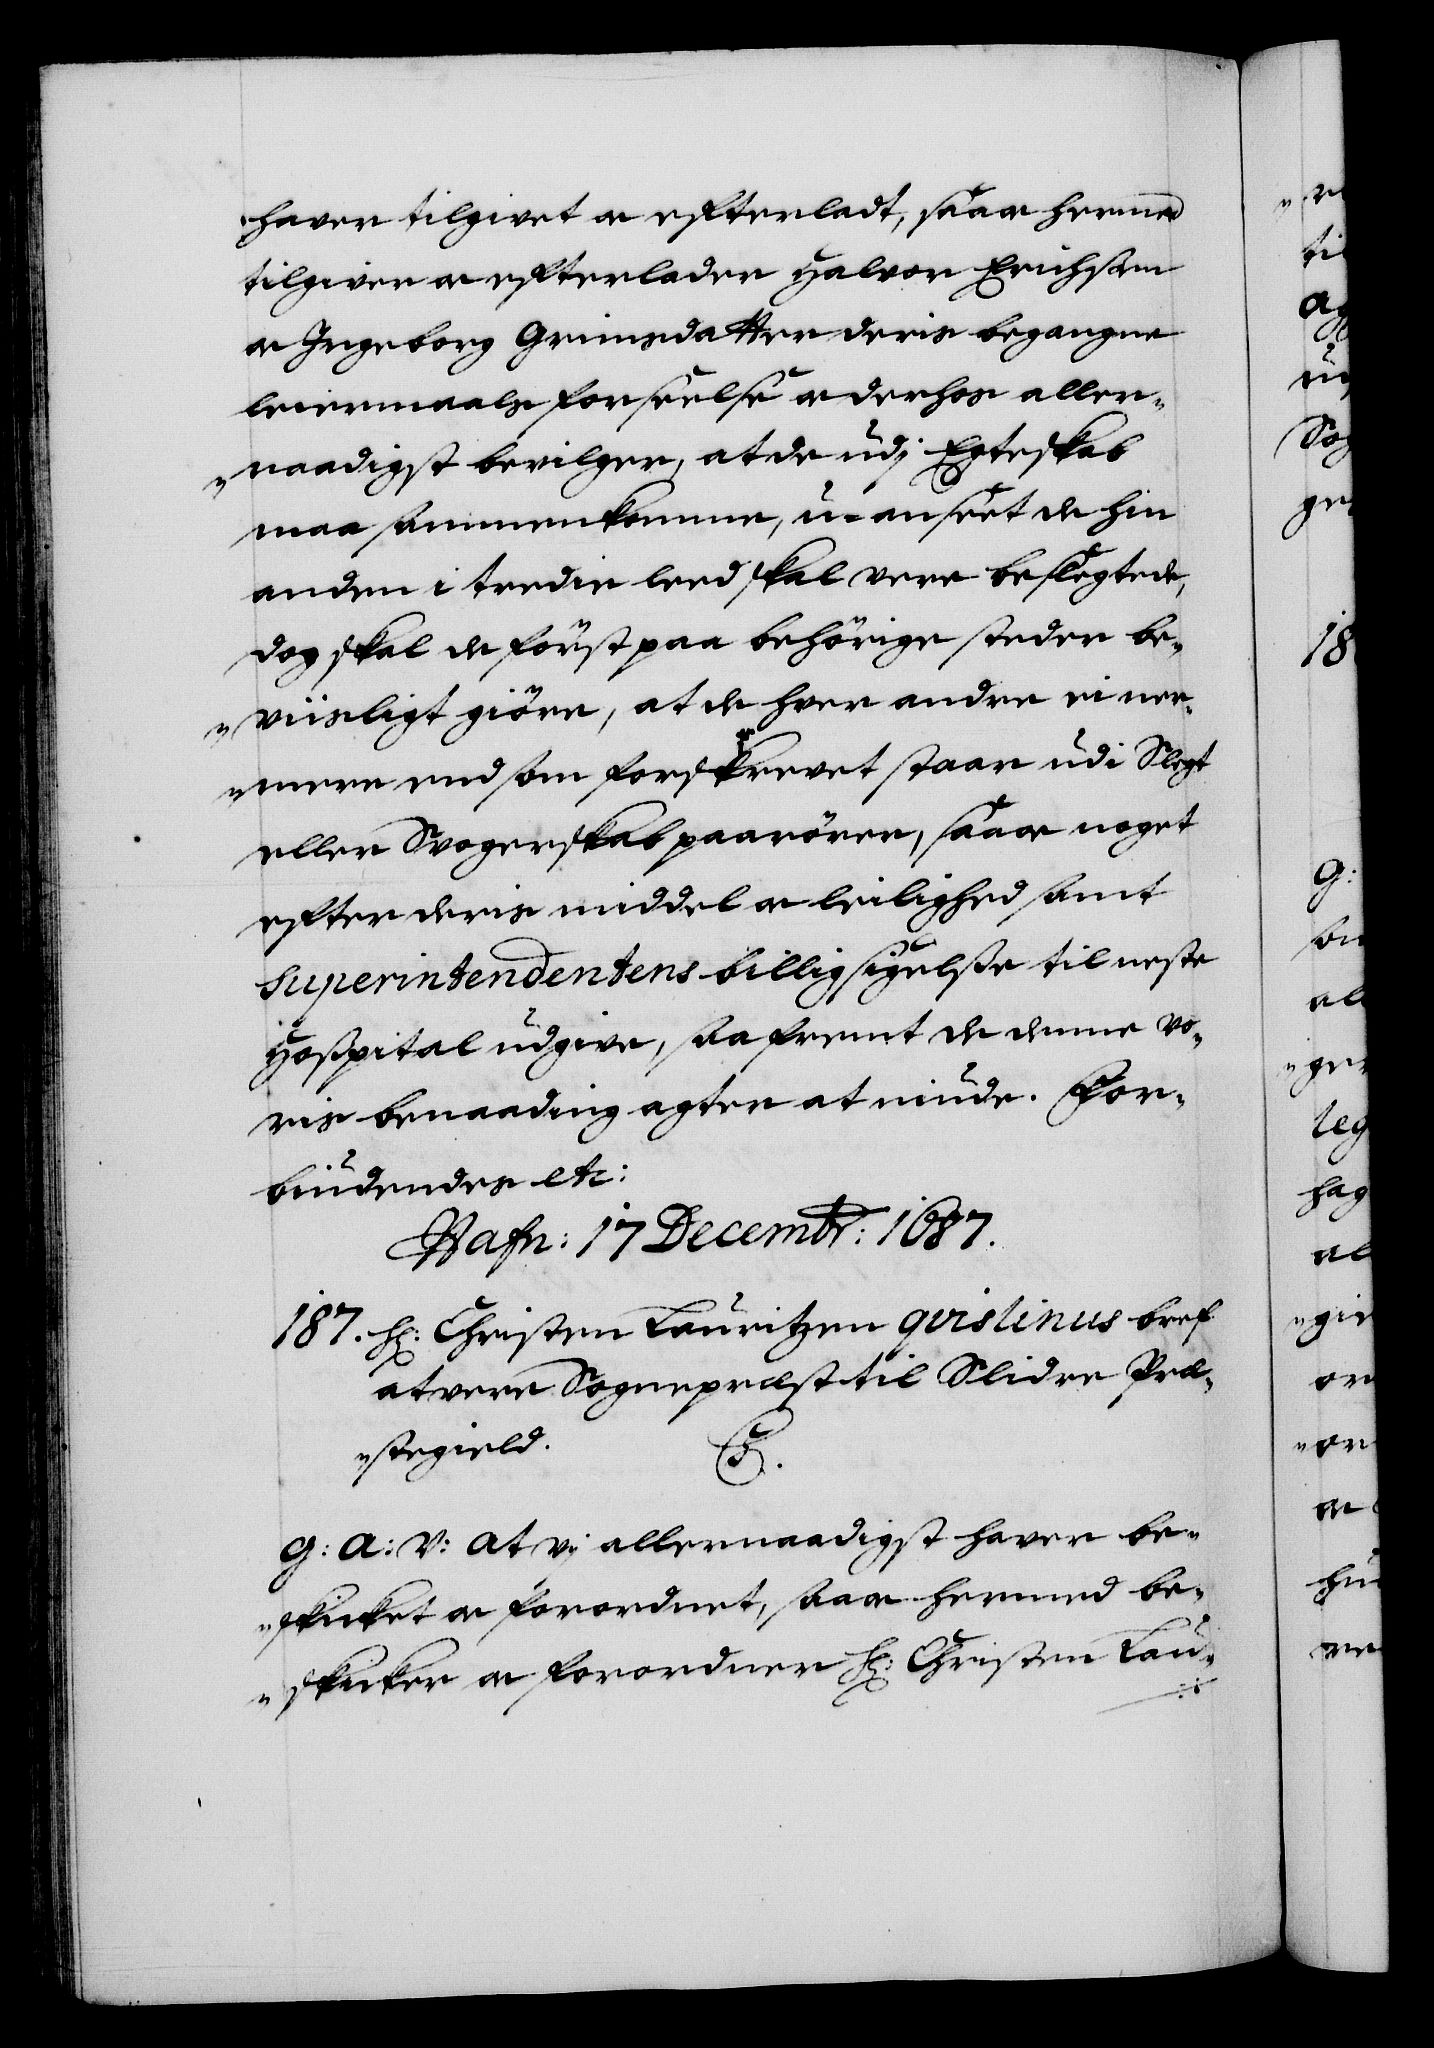 haver tilgivet oc efterladt, saa oc hermed
tilgiver oc efterlader Halvor Erichsøn
oc Ingeborg Grimsdatter deris begangne
leiermaals forseelse oc derhos aller-
naadigst bevilger, at de udj Egteskab
maa sammenkomme, u-anseet de hin
anden i tredie leed skal vere beslegtede,
dog skal de först paa behörige steder be-
viisligt giöre, at de hver andre ei ner-
mere end som forskrevet staar udi Slegt
eller Svogerskab paarörer, saa oc noget
efter deris middel oc leilighed samt
Superintendentens billigsigelsse til neste
Hosspital udgive, saafremt de denne vo-
ris benaading agter at niude. For-
biudendes etc:
Hafn: 17 Decembr: 1687.
187. Hr: Christen Lauritzen qvistinus bref
at vere Sogneprest til Slidre Præ-
stegield. C.
G: A: V: At vj allernaadigst haver be-
skicket oc forordnet, saa oc hermed be-
skicker oc forordner Hr: Christen Lau-